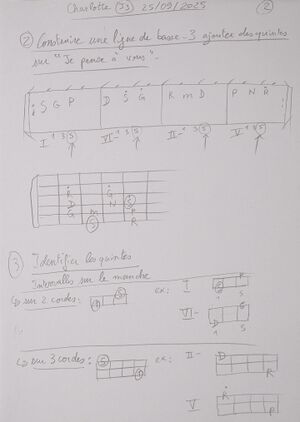 Charlotte (J3) 25/09/2025 (2)
② Construire une ligne de basse - 3 ajouter des quintes
sur "Je pense à vous" -
S G P D S G R m D P N R
I 1 3 (5) VI- 1 3 (5) II- 1 3 (5) V 1 3 (5)
R G
D N S
G m P
S R
③ Identifier les quintes
Intervalles sur le manche
↳ sur 2 cordes: 1 5 ex: I G P
1 5
VI- D S
1 5
↳ sur 3 cordes: 5 1 ex: II- D
R
V R
P